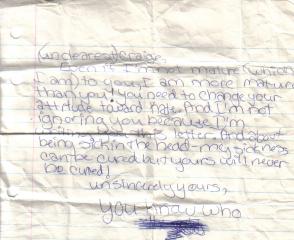 (unclearest) Craige,
Even if I'm not mature (which
I am) to you, I am more mature
than you! You need to change your
attitude toward Kate. And I'm not
ignoring you because I'm
writing you this letter. And about
being sick in the head - my sickness
can be cured but yours will never
be cured!
unsincerely yours,
you know who